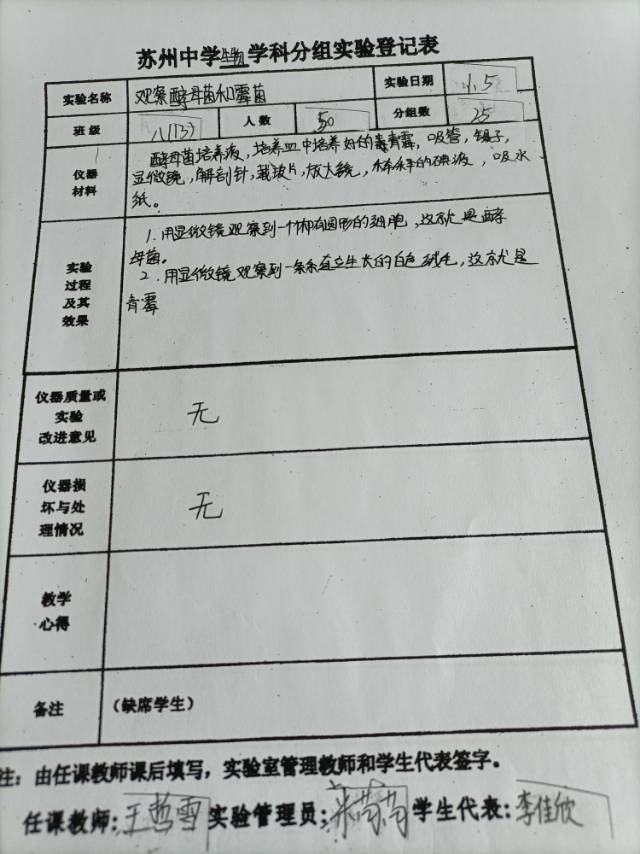 苏州中学生物学科分组实验登记表
实验名称 观察酵母菌和霉菌 实验日期 11.5
班级 八(13) 人数 50 分组数 25
仪器材料 酵母菌培养液,培养皿中培养好的青霉,吸管,镊子,
显微镜,解剖针,载玻片,放大镜,稀释的碘液,吸水
纸。
实验过程及其效果
1.用显微镜观察到一个个椭圆形的细胞,这就是酵
母菌。
2.用显微镜观察到一条条直立生长的白色绒毛,这就是
青霉
仪器质量或实验改进意见 无
仪器损坏与处理情况 无
教学心得
备注 (缺席学生)
注:由任课教师课后填写,实验室管理教师和学生代表签字。
任课教师:王哲雪 实验管理员:朱茵茵 学生代表:李佳欣